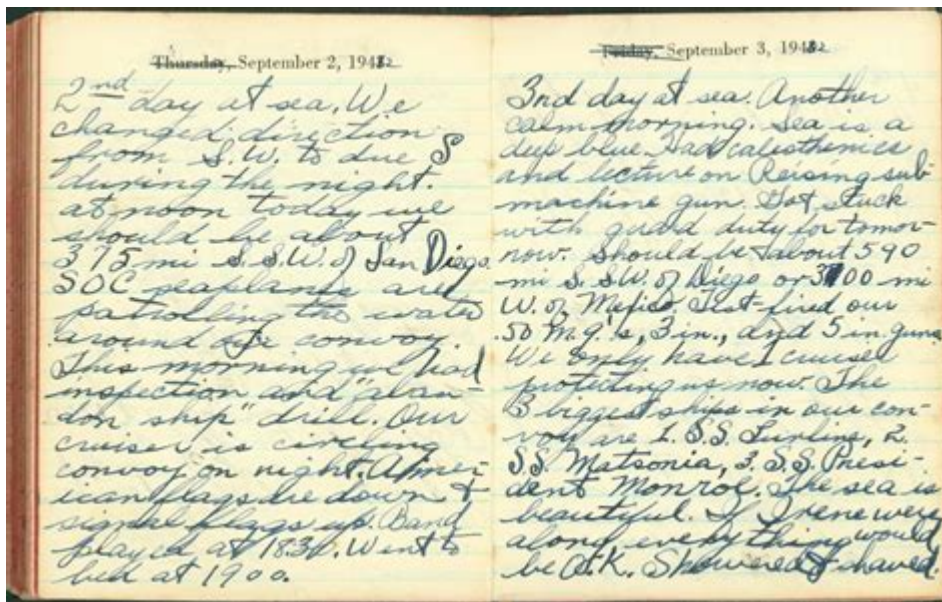 Thursday, September 2, 1942
2nd day at sea. We
changed direction
from S.W. to due S
during the night.
at noon today we
should be about
375 mi S.S.W. of San Diego.
SOC seaplanes are
patrolling the water
around our convoy.
This morning we had
inspection and "aban-
don ship" drill. Our
cruiser is circling
convoy on right. Amer-
ican flags are down &
signal flags up. Band
played at 1830. Went to
bed at 1900.
Friday, September 3, 1942
3rd day at sea. Another
calm morning. Sea is a
deep blue. Had calesthenics
and lecture on Reising sub-
machine gun. Got stuck
with guard duty for tomor-
row. Should be about 590
mi S.SW. of Diego or 300 mi
W. of Mexico. Test-fired our
.50 M.G.'s, 3 in., and 5 in guns.
We only have 1 cruiser
protecting us now. The
3 biggest ships in our con-
voy are 1. S.S. Lurline, 2.
SS. Matsonia, 3. S.S. Presi-
dent Monroe. The sea is
beautiful. If Irene were
along, everything would
be O.K. Showered & shaved.